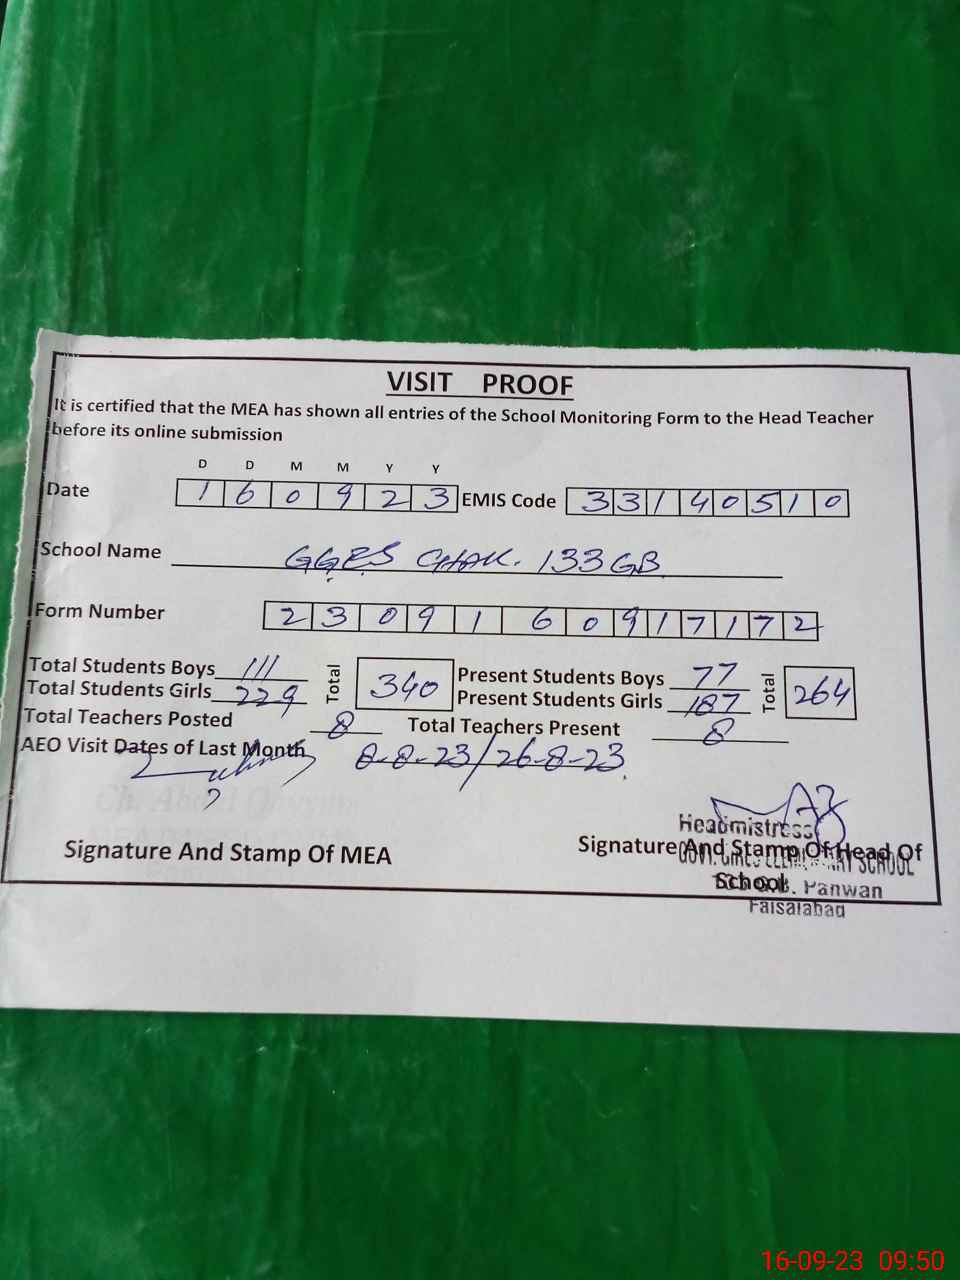 VISIT PROOF
It is certified that the MEA has shown all entries of the School Monitoring Form to the Head Teacher
before its online submission
D D M M Y Y
Date 1 6 0 9 2 3 EMIS Code 3 3 1 4 0 5 1 0
School Name GGES CHAK. 133 GB
Form Number 2 3 0 9 1 6 0 9 1 7 1 7 2
Total Students Boys 111 Total 340 Present Students Boys 77 Total 264
Total Students Girls 229 Present Students Girls 187
Total Teachers Posted 8 Total Teachers Present 8
AEO Visit Dates of Last Month 8-8-23/26-8-23
Headmistress
Signature And Stamp Of MEA Signature And Stamp Of Head Of
GOVT. GIRLS ELEMENTARY SCHOOL
School
G.B. Panwan
Faisalabad
16-09-23 09:50